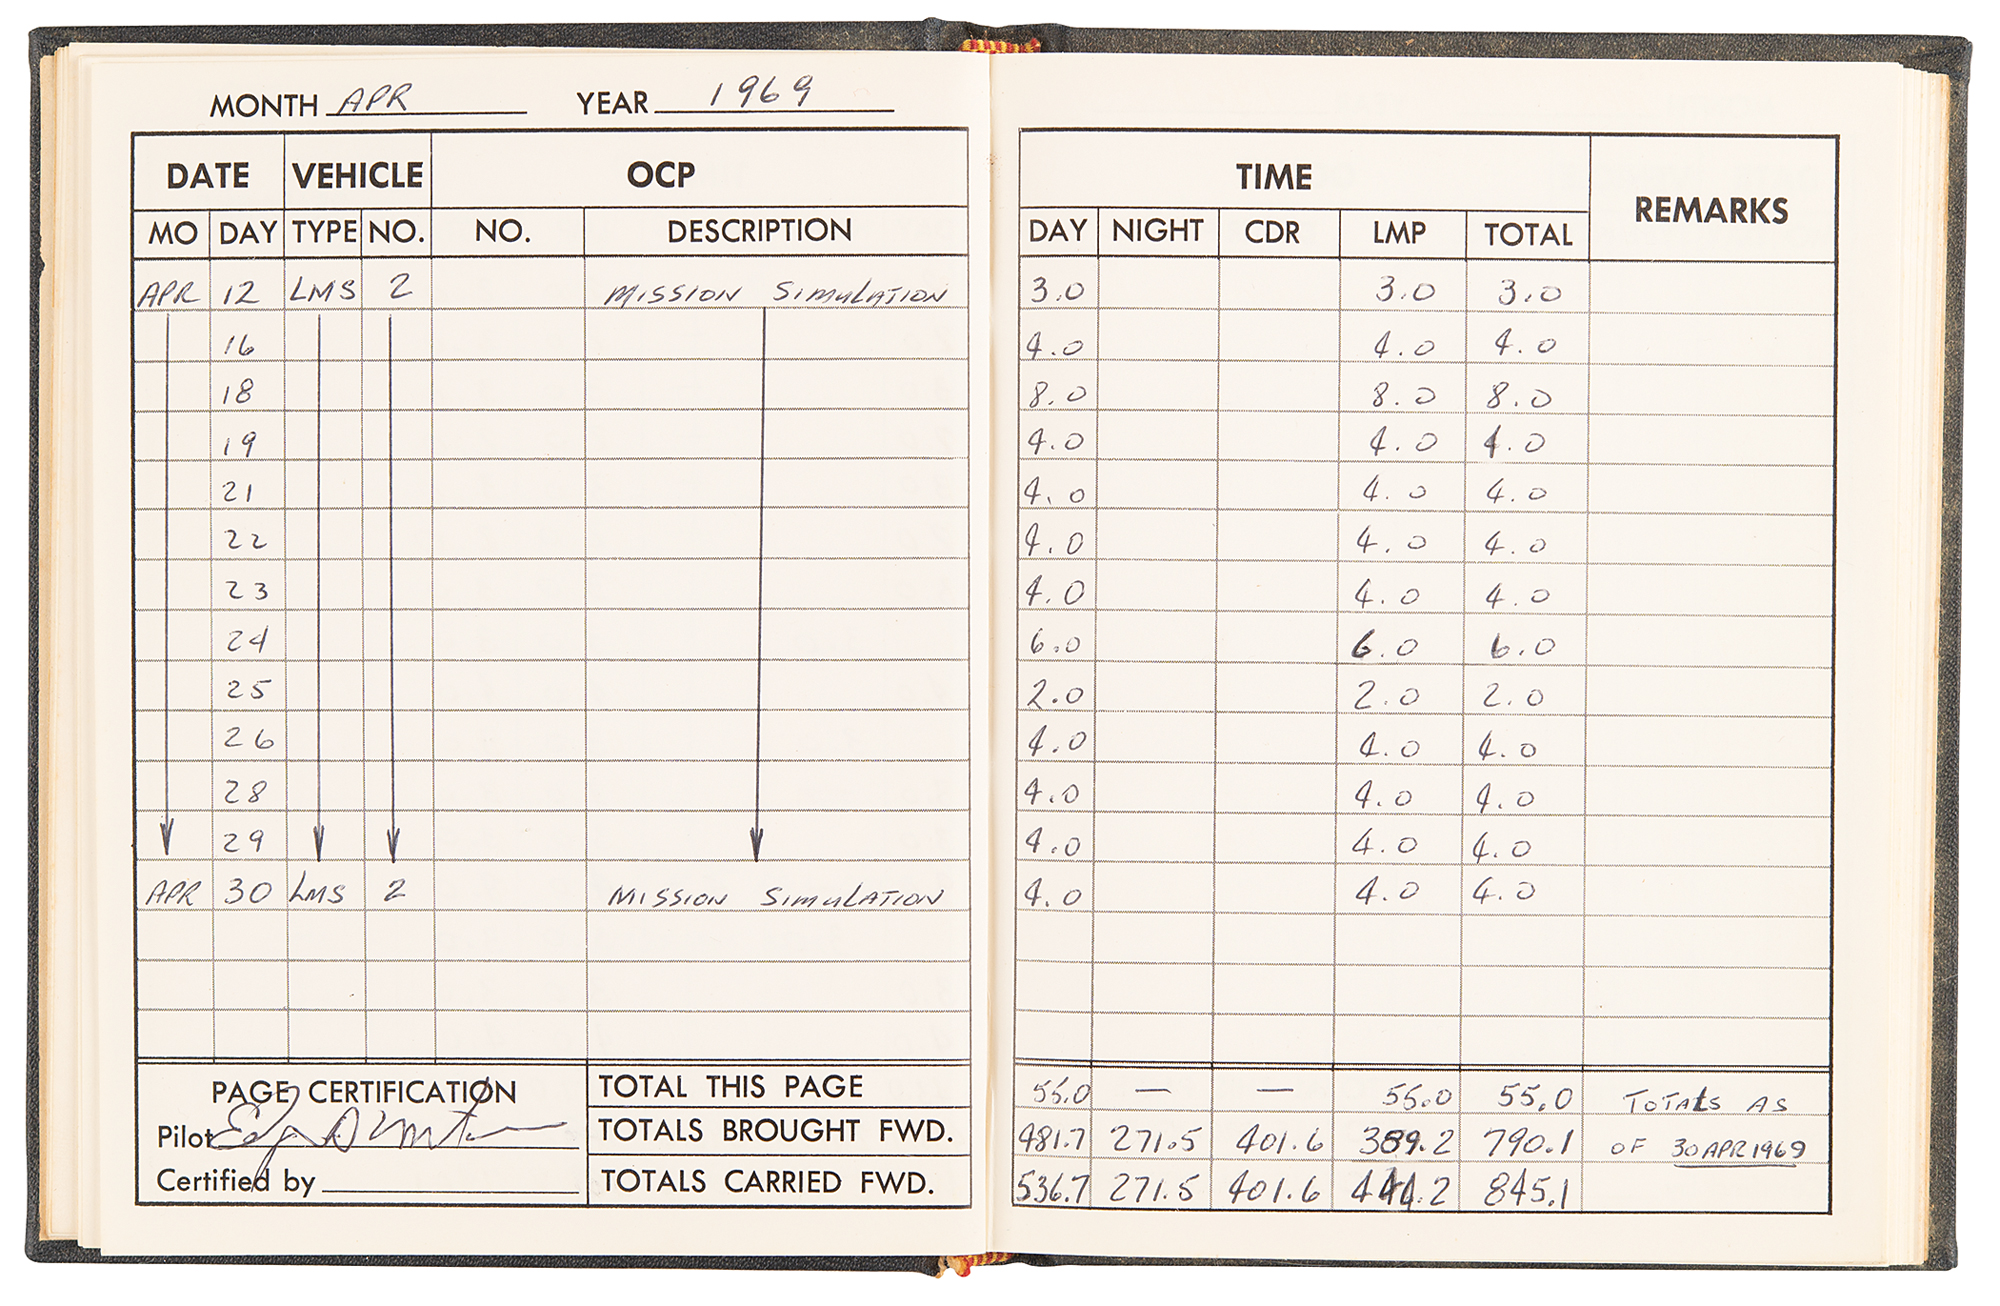 MONTH APR YEAR 1969
DATE VEHICLE OCP TIME REMARKS
MO DAY TYPE NO. NO. DESCRIPTION DAY NIGHT CDR LMP TOTAL
APR 12 LMS 2 MISSION SIMULATION 3.0 3.0 3.0
16 4.0 4.0 4.0
18 8.0 8.0 8.0
19 4.0 4.0 4.0
21 4.0 4.0 4.0
22 4.0 4.0 4.0
23 4.0 4.0 4.0
24 6.0 6.0 6.0
25 2.0 2.0 2.0
26 4.0 4.0 4.0
28 4.0 4.0 4.0
29 4.0 4.0 4.0
APR 30 LMS 2 MISSION SIMULATION 4.0 4.0 4.0
PAGE CERTIFICATION TOTAL THIS PAGE 55.0 — — 55.0 55.0 TOTALS AS
Pilot TOTALS BROUGHT FWD. 481.7 271.5 401.6 389.2 790.1 OF 30 APR 1969
Certified by TOTALS CARRIED FWD. 536.7 271.5 401.6 444.2 845.1